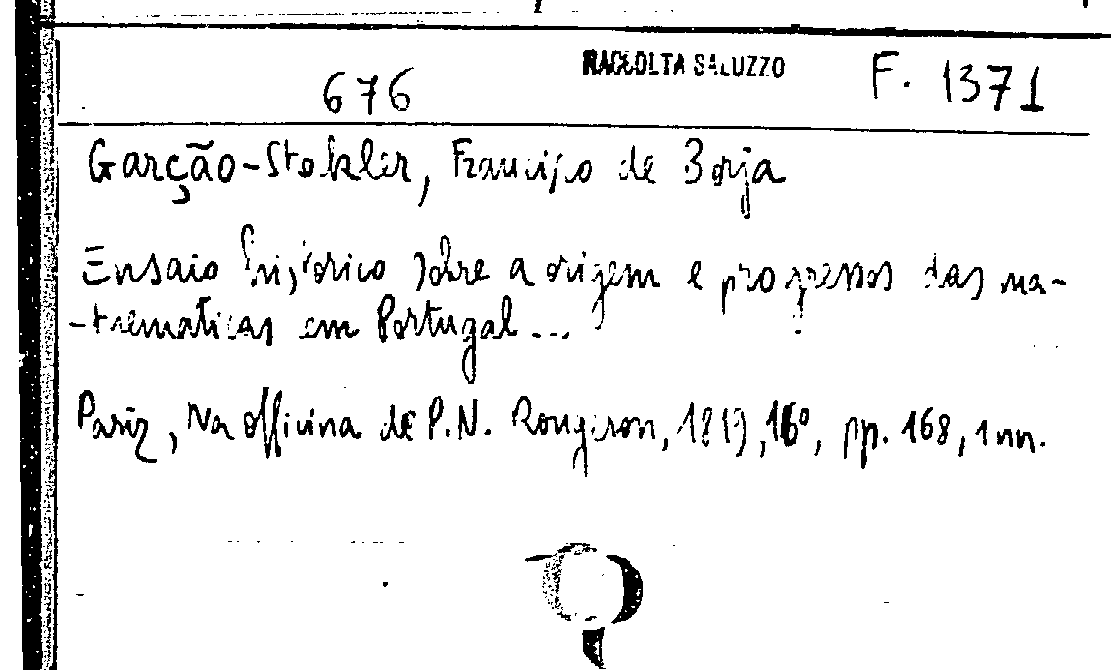 676 RACCOLTA SALUZZO F. 1371
Garção-Stokler, Francisco de Borja
Ensaio historico sobre a origem e progressos das ma-
-thematicas em Portugal...
Pariz, Na officina de P.N. Rougeron, 1819, 16°, pp. 168, 1 nn.